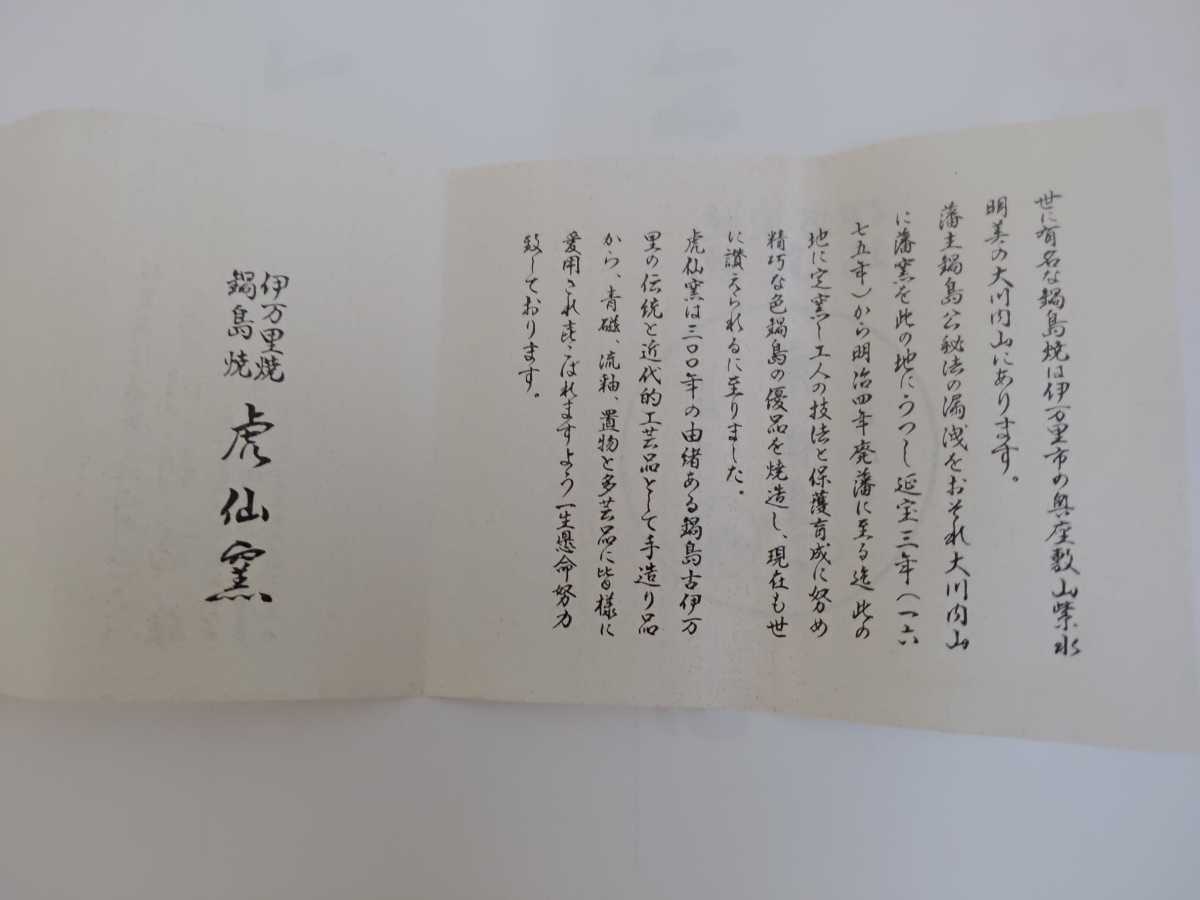 世に有名な鍋島焼は伊万里市の奥座敷山紫水
明美の大川内山にあります。
藩主鍋島公秘法の漏洩をおそれ大川内山
に藩窯を此の地にうつし延宝三年(一六
七五年)から明治四年廃藩に至る迄此の
地に定窯し工人の技法と保護育成に努め
精巧な色鍋島の優品を焼造し、現在も世
に讃えられるに至りました。
虎仙窯は三〇〇年の由緒ある鍋島古伊万
里の伝統と近代的工芸品として手造り品
から、青磁、流釉、置物と多芸品に皆様に
愛用され喜こばれますよう一生懸命努力
致しております。
伊万里焼
鍋島焼
虎仙窯